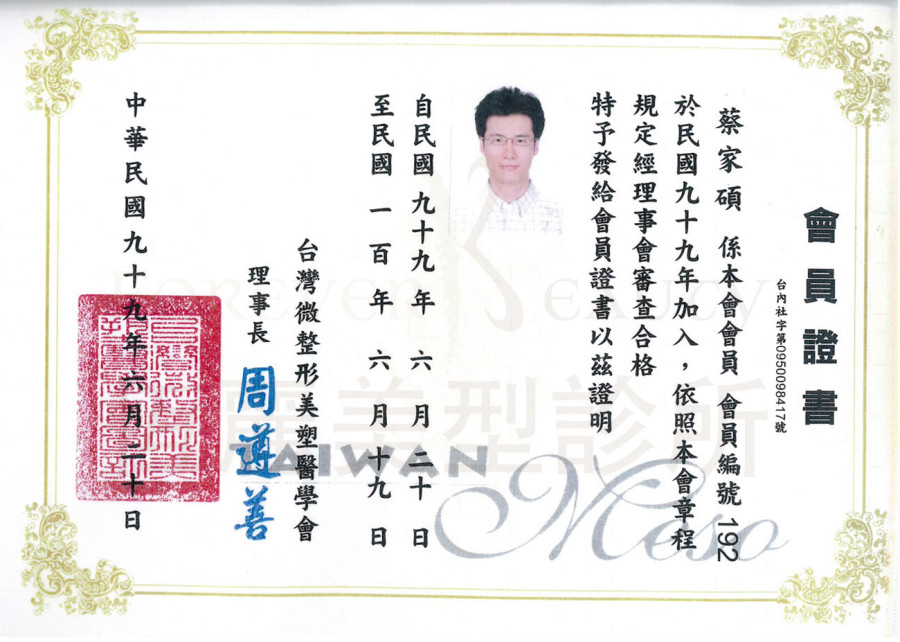 會員證書
台內社字第0950098417號
蔡家碩 係本會會員 會員編號 192
於民國九十九年加入，依照本會章程
規定經理事會審查合格
特予發給會員證書以茲證明
自民國九十九年 六 月二十日
至民國 一 百 年 六 月十九 日
台灣微整形美塑醫學會
理事長 周遵善
中華民國九十九年六月二十日
TAIWAN
Meso
FOREVER BEAUTY
麗美型診所